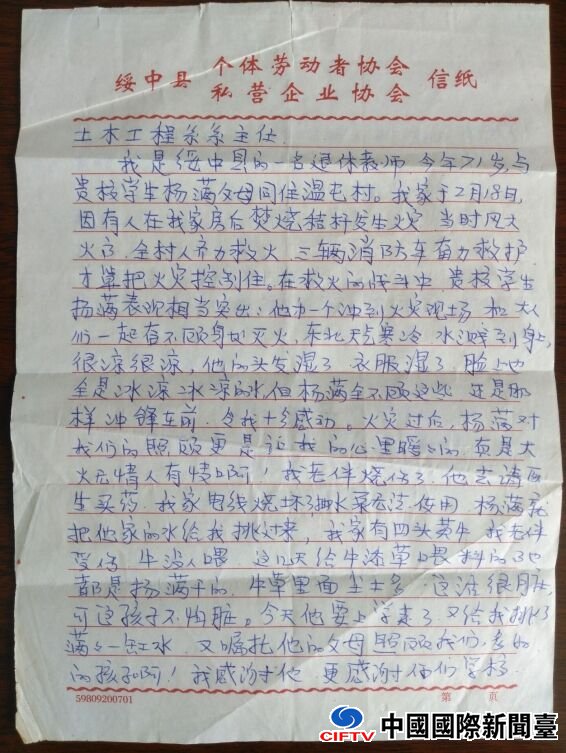 绥中县 个体劳动者协会 信纸
私营企业协会
土木工程系系主任
我是绥中县的一名退休教师，今年71岁，与
贵校学生杨满父母同住温屯村。我家于2月18日，
因有人在我家房后焚烧秸秆发生火灾 当时风大
火高，全村人齐力救火，三辆消防车奋力救护
才算把火灾控制住。在救火的战斗中 贵校学生
杨满表现相当突出：他力一个冲到火灾现场 和大人
们一起奋不顾身地灭火，东北天气寒冷 水溅到身上，
很凉很凉，他的头发湿了 衣服湿了 脸上也
全是冰凉冰凉的水，但杨满全不顾这些 还是那
样冲锋在前 令我十分感动。火灾过后，杨满对
我们的照顾更是让我的心里暖々的 真是大
火无情人有情啊！我老伴烧伤了 他去请医
生买药 我家电线烧坏了抽水泵无法使用 杨满就
把他家的水给我挑过来，我家有四头黄牛 我老伴
受伤 牛没人喂 这几天给牛添草喂料的
都是杨满干的，牛草里面尘土多 这活很脏，
可这孩子不怕脏。今天他要上学走了 又给我挑了
满々一缸水 又嘱托他的父母照顾我们，多好
的孩子啊！我感谢他 更感谢你们学校
59809200701
第 页
CIFTV 中國國際新聞臺